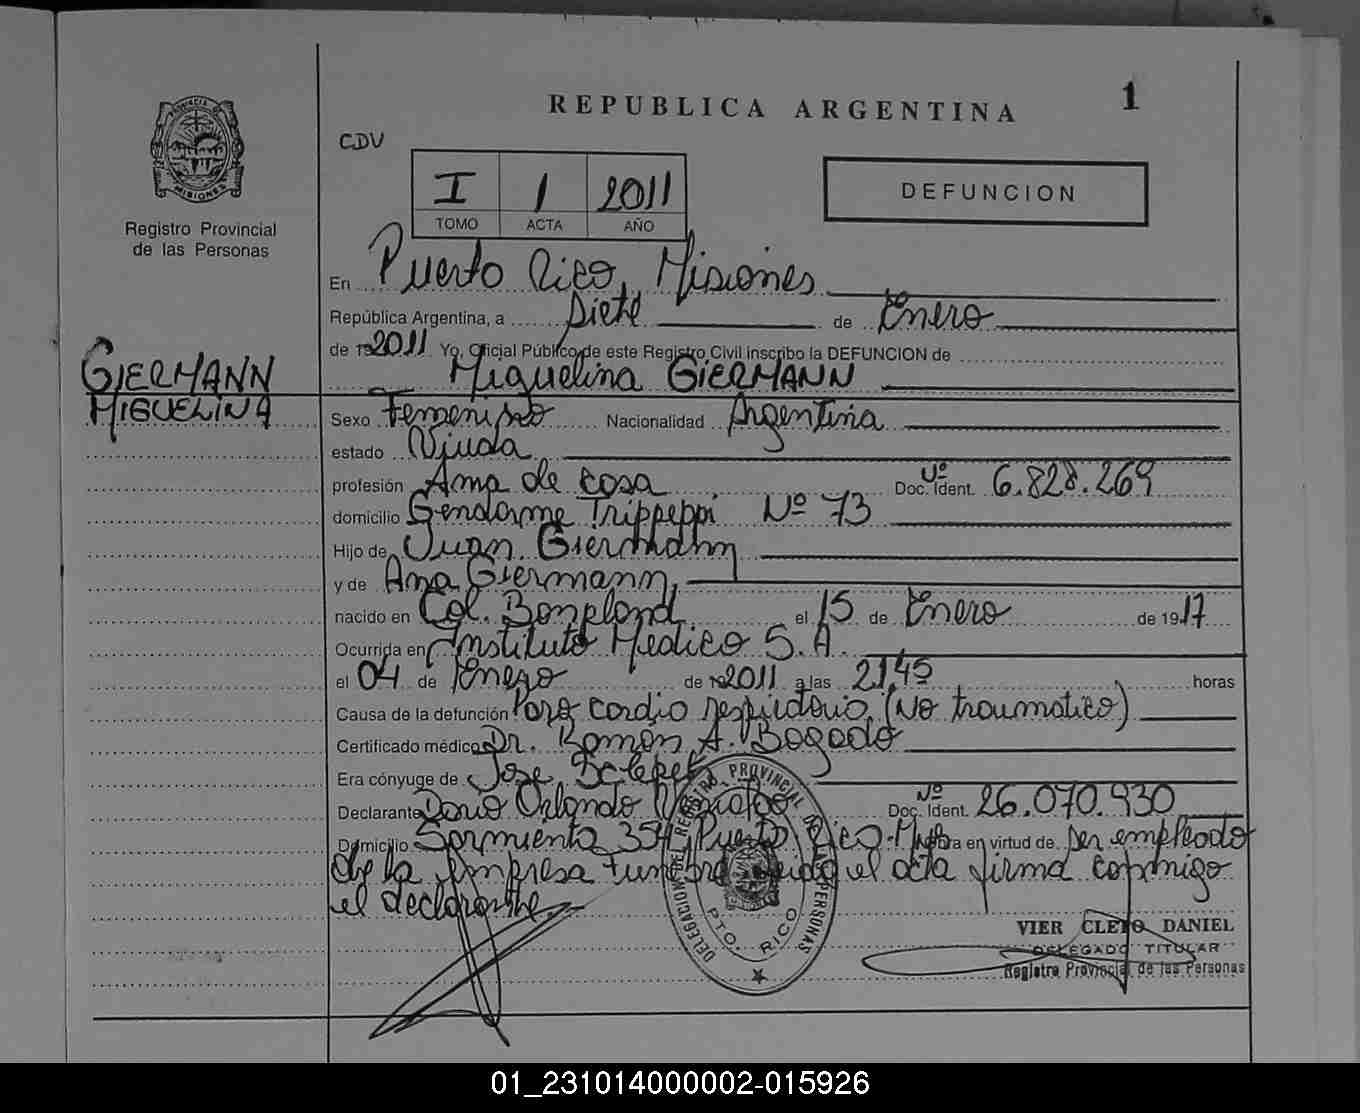 REPUBLICA ARGENTINA
1
PROVINCIA DE
MISIONES
Registro Provincial
de las Personas
CDV
I 1 2011
TOMO ACTA AÑO
DEFUNCION
En Puerto Rico, Misiones
República Argentina, a siete de Enero
de 19 2011 Yo, Oficial Público de este Registro Civil inscribo la DEFUNCION de
Miguelina GIERMANN
GIERMANN
MIGUELINA
Sexo Femenino Nacionalidad Argentina
estado Viuda
profesión Ama de casa Doc. Ident. Nº 6.828.269
domicilio Gendarme Trippeppi Nº 73
Hijo de Juan Giermann
y de Ana Giermann
nacido en Col. Bonpland el 15 de Enero de 1917
Ocurrida en Instituto Medico S.A.
el 04 de Enero de 19 2011 a las 21,45 horas
Causa de la defunción Paro cardio respiratorio (No traumatico)
Certificado médico Dr. Ramón A. Bogado
Era cónyuge de Jose
Declarante Dario Orlando Doc. Ident. Nº 26.070.930
Domicilio Sarmiento 354, Puerto Rico-Mnes Obra en virtud de ser empleado
de la empresa funebre leida el acta firma conmigo
el declarante.
DELEGACION DEL REGISTRO PROVINCIAL DE LAS PERSONAS
PTO. RICO
VIER CLETO DANIEL
DELEGADO TITULAR
Registro Provincial de las Personas
01_231014000002-015926